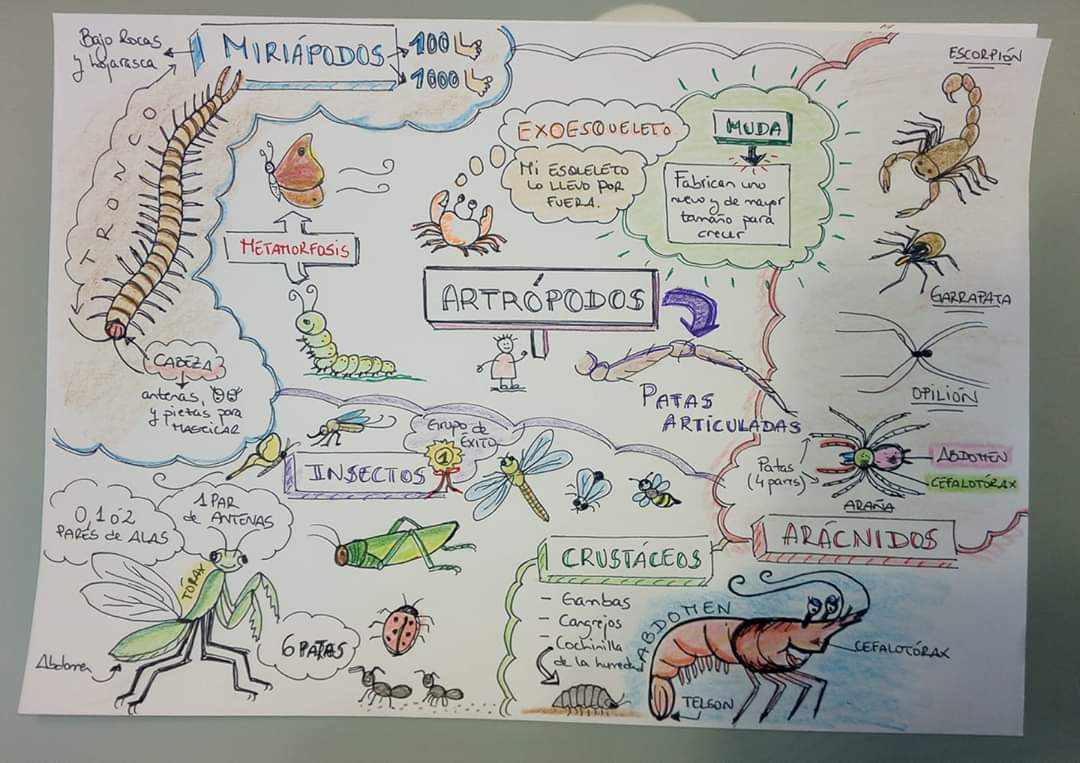 Bajo Rocas
y Hojarasca
MIRIÁPODOS
100
1000
TRONCO
CABEZA
antenas,
y piezas para
MASTICAR
METAMORFOSIS
EXOESQUELETO
MI ESQUELETO
LO LLEVO POR
FUERA.
MUDA
Fabrican uno
nuevo y de mayor
tamaño para
crecer
ARTRÓPODOS
PATAS
ARTICULADAS
ESCORPIÓN
GARRAPATA
OPILIÓN
Patas
(4 pares)
ABDOMEN
CEFALOTÓRAX
ARAÑA
ARÁCNIDOS
Grupo de
ÉXITO
1
INSECTOS
0, 1 ó 2
PARES de ALAS
1 PAR
de ANTENAS
TÓRAX
6 PATAS
Abdomen
CRUSTÁCEOS
- Gambas
- Cangrejos
- Cochinilla
de la humedad
ABDOMEN
CEFALOTÓRAX
TELSON